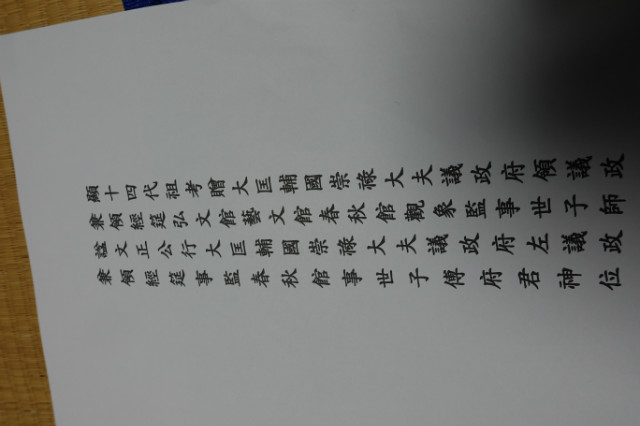 顯十四代祖考贈大匡輔國崇祿大夫議政府領議政
兼領經筵弘文館藝文館春秋館觀象監事世子師
諡文正公行大匡輔國崇祿大夫議政府左議政
兼領經筵事監春秋館事世子傅府君神位